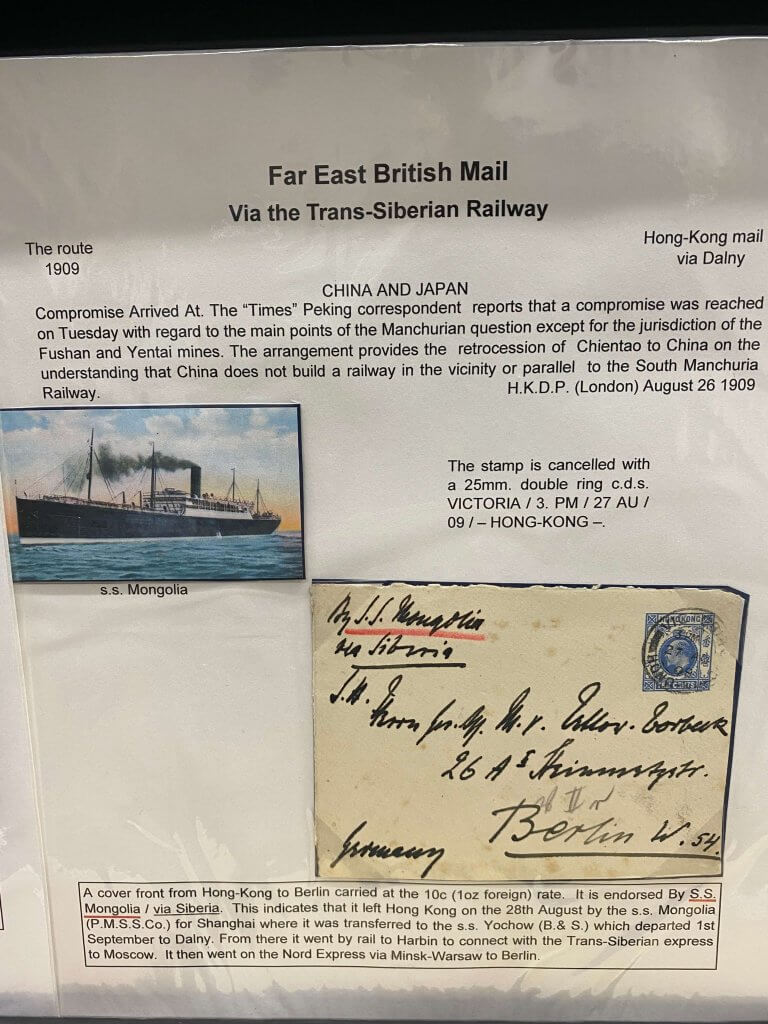 Far East British Mail
Via the Trans-Siberian Railway
The route
1909
Hong-Kong mail
via Dalny
CHINA AND JAPAN
Compromise Arrived At. The “Times” Peking correspondent reports that a compromise was reached
on Tuesday with regard to the main points of the Manchurian question except for the jurisdiction of the
Fushan and Yentai mines. The arrangement provides the retrocession of Chientao to China on the
understanding that China does not build a railway in the vicinity or parallel to the South Manchuria
Railway.
H.K.D.P. (London) August 26 1909
s.s. Mongolia
The stamp is cancelled with
a 25mm. double ring c.d.s.
VICTORIA / 3. PM / 27 AU /
09 / – HONG-KONG –.
By S.S. Mongolia
via Siberia
HONG KONG
TEN CENTS
26 A
Berlin W. 54.
Germany
A cover front from Hong-Kong to Berlin carried at the 10c (1oz foreign) rate. It is endorsed By S.S.
Mongolia / via Siberia. This indicates that it left Hong Kong on the 28th August by the s.s. Mongolia
(P.M.S.S.Co.) for Shanghai where it was transferred to the s.s. Yochow (B.& S.) which departed 1st
September to Dalny. From there it went by rail to Harbin to connect with the Trans-Siberian express
to Moscow. It then went on the Nord Express via Minsk-Warsaw to Berlin.